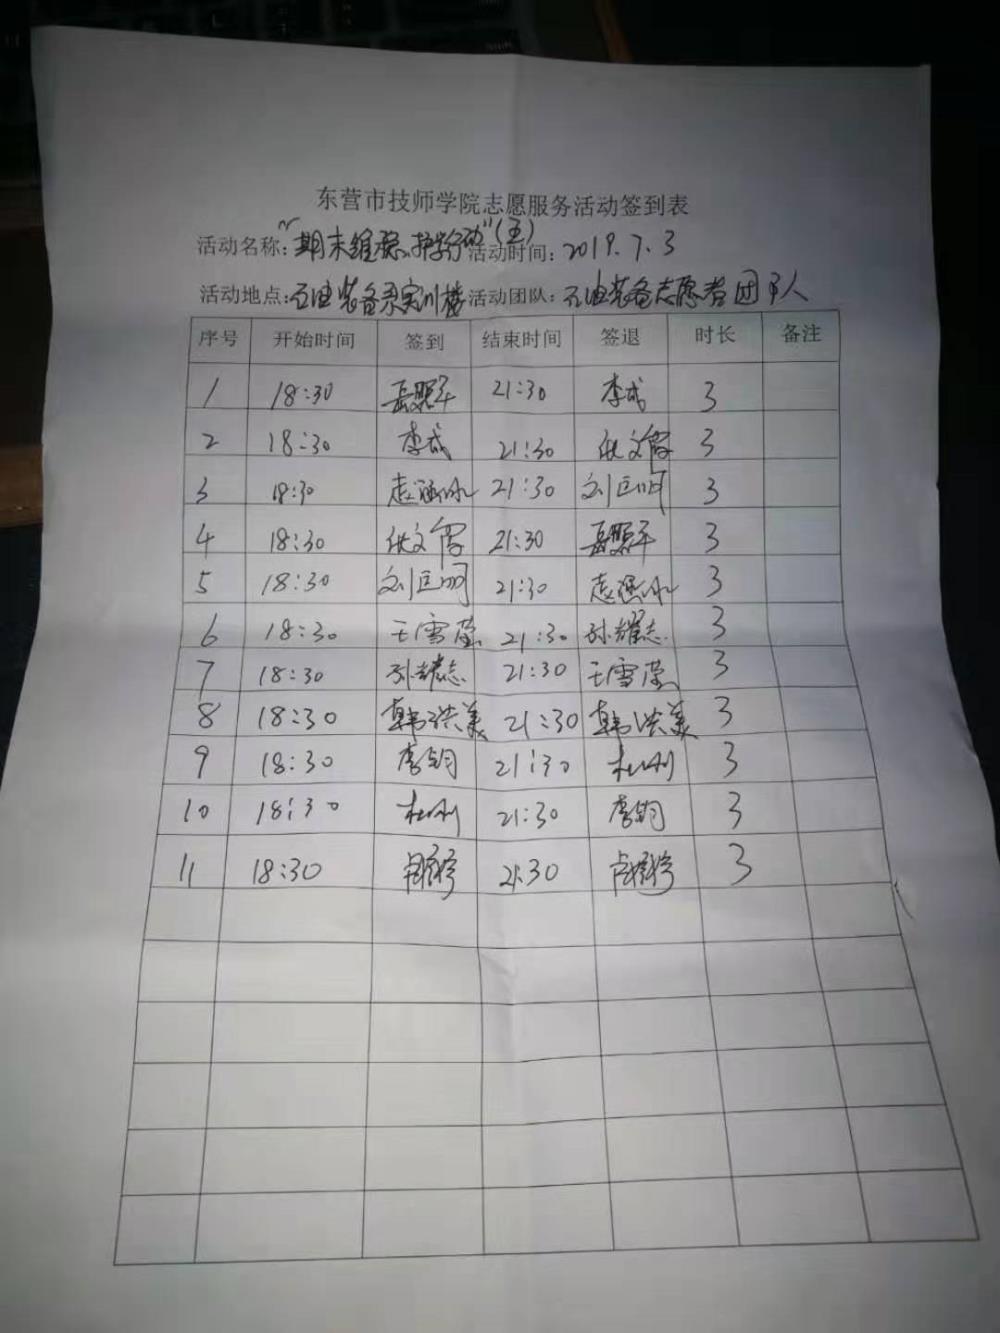 东营市技师学院志愿服务活动签到表
活动名称:"期末维稳,护学行动"(五) 活动时间: 2019.7.3
活动地点:石油装备系实训楼 活动团队:石油装备志愿者团队
序号 开始时间 签到 结束时间 签退 时长 备注
1 18:30 岳照军 21:30 李成 3
2 18:30 李成 21:30 张文霄 3
3 18:30 21:30 3
4 18:30 张文霄 21:30 岳照军 3
5 18:30 21:30 3
6 18:30 王雪莹 21:30 孙耀志 3
7 18:30 孙耀志 21:30 王雪莹 3
8 18:30 韩洪美 21:30 韩洪美 3
9 18:30 李钥 21:30 杜刚 3
10 18:30 杜刚 21:30 李钥 3
11 18:30 21:30 3